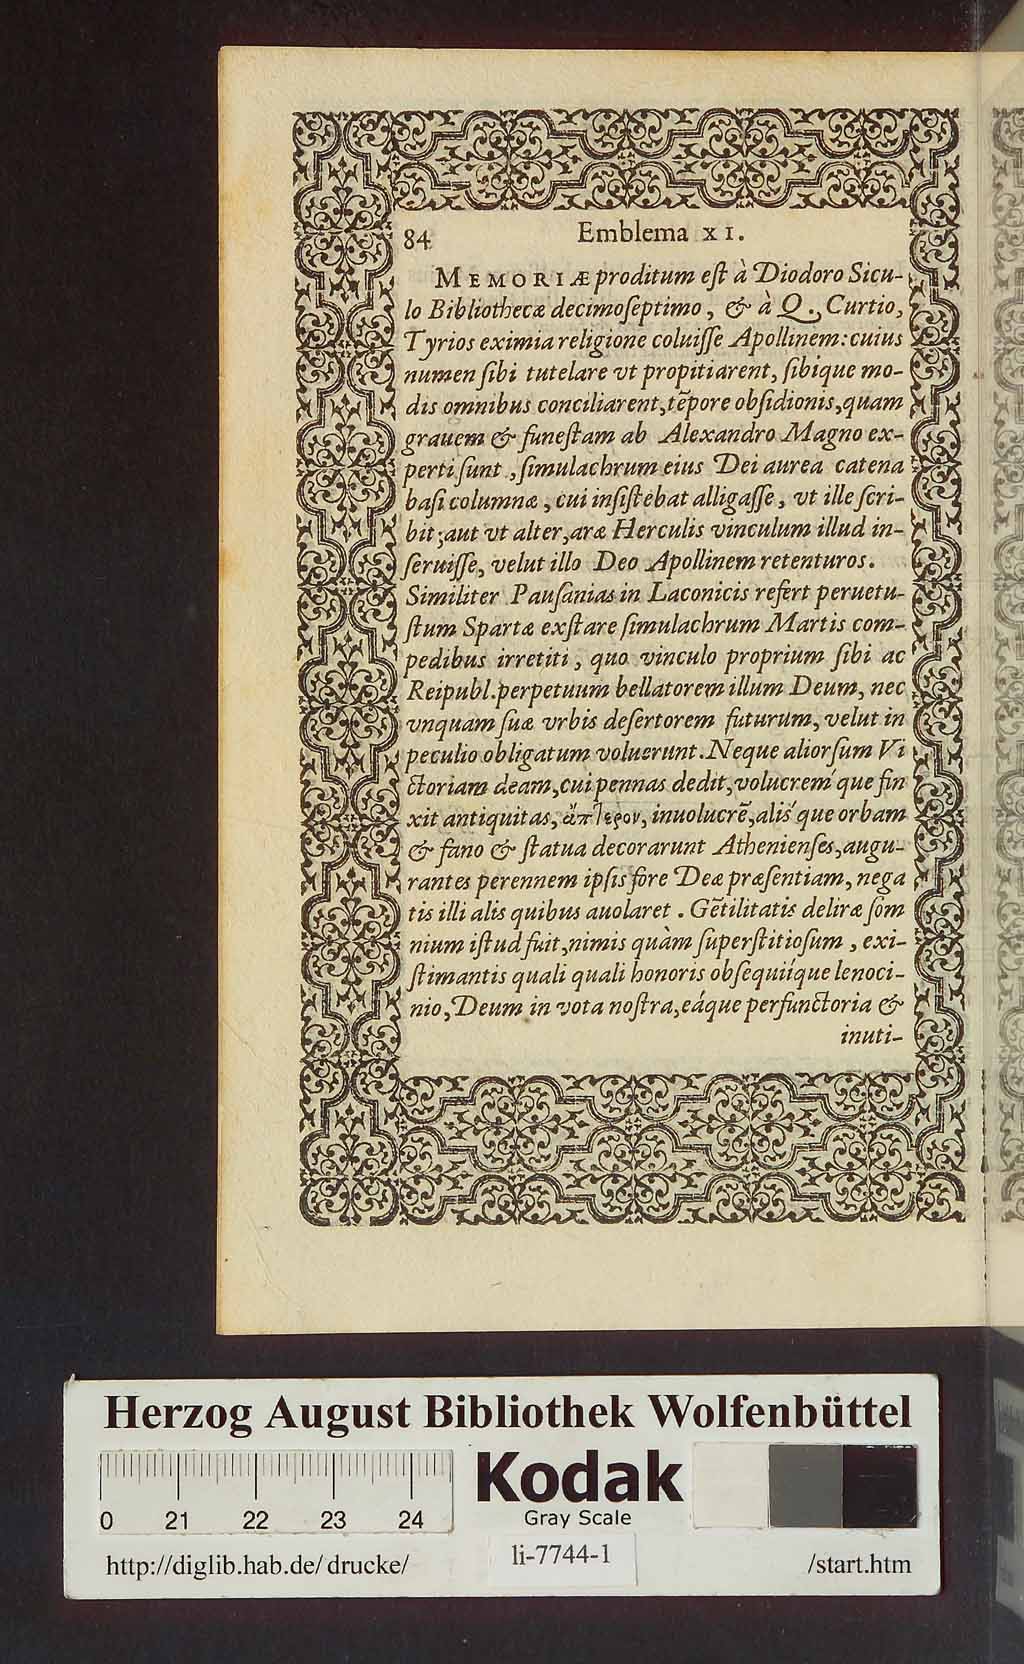 84 Emblema XI.
MEMORIÆ proditum eſt à Diodoro Sicu-
lo Bibliothecæ decimoſeptimo, & à Q. Curtio,
Tyrios eximia religione coluiſſe Apollinem: cuius
numen ſibi tutelare vt propitiarent, ſibique mo-
dis omnibus conciliarent, tẽpore obſidionis, quam
grauem & funeſtam ab Alexandro Magno ex-
perti ſunt, ſimulachrum eius Dei aurea catena
baſi columnæ, cui inſiſtebat alligaſſe, vt ille ſcri-
bit; aut vt alter, aræ Herculis vinculum illud in-
ſeruiſſe, velut illo Deo Apollinem retenturos.
Similiter Pauſanias in Laconicis refert peruetu-
ſtum Spartæ exſtare ſimulachrum Martis com-
pedibus irretiti, quo vinculo proprium ſibi ac
Reipubl. perpetuum bellatorem illum Deum, nec
vnquam ſuæ vrbis deſertorem futurum, velut in
peculio obligatum voluerunt. Neque aliorſum Vi
ctoriam deam, cui pennas dedit, volucreḿque fin
xit antiquitas, ἄπτερον, inuolucrẽ, aliś que orbam
& fano & ſtatua decorarunt Athenienſes, augu-
rantes perennem ipſis fore Deæ præſentiam, nega
tis illi alis quibus auolaret. Gẽtilitatis deliræ ſom
nium iſtud fuit, nimis quàm ſuperſtitioſum, exi-
ſtimantis quali quali honoris obſequiíque lenoci-
nio, Deum in vota noſtra, eáque perfunctoria &
inuti-
Herzog August Bibliothek Wolfenbüttel
0 21 22 23 24
Kodak
Gray Scale
http://diglib.hab.de/drucke/ li-7744-1 /start.htm